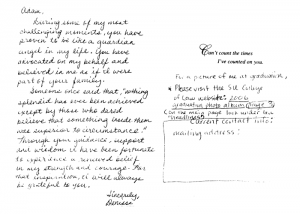 Adam,
During some of my most
challenging moments, you have
proven to be like a guardian
angel in my life. You have
advocated on my behalf and
believed in me as if I were
part of your family.
Someone once said that, "nothing
splendid has ever been achieved
except by those who dared
believe that something inside them
was superior to circumstance."
Through your guidance, support
and wisdom I have been fortunate
to experience a renewed belief
in my strength and courage. For
that inspiration, I will always
be grateful to you.
Sincerely,
Can't count the times
I've counted on you.
a picture of me at graduation,
Please visit the SIU College
of Law website: 2006
graduation photo album (Page 3)
(on the main page back under
"headlines")
Current contact info:
mailing address: